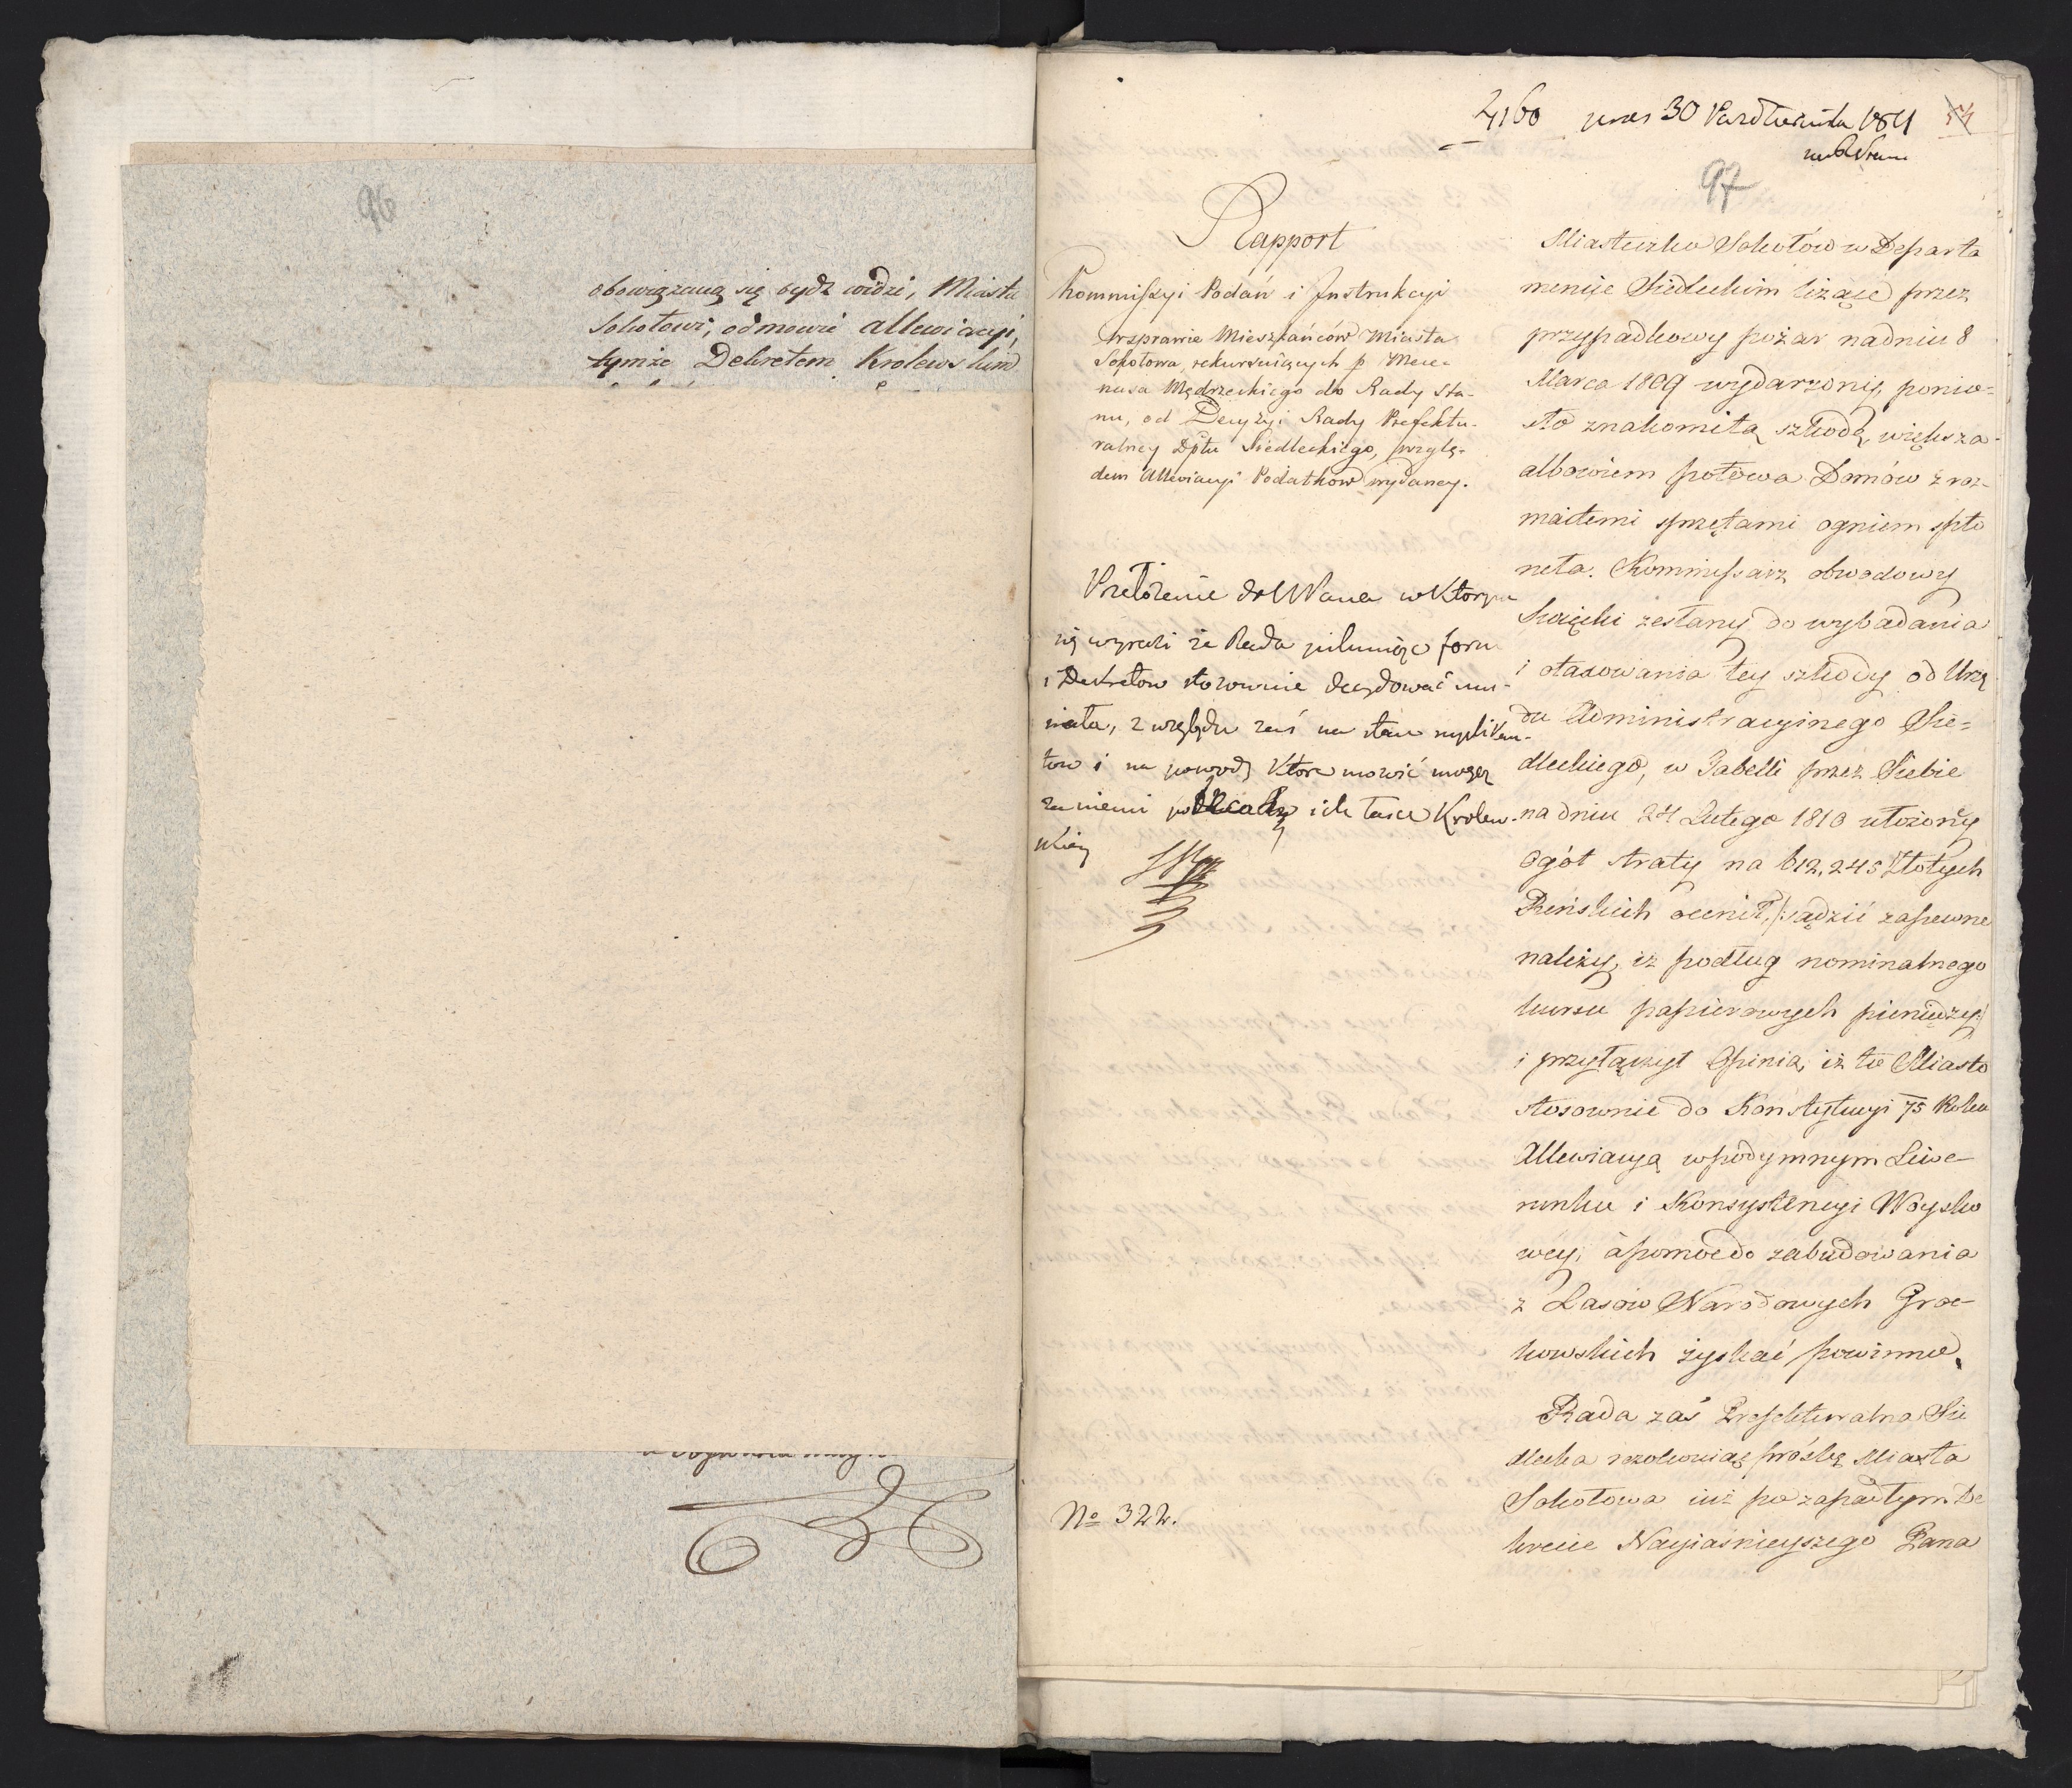 96
obowiązaną się bydź widzi, Miastu
Sokołowi, odmowić allewiacyi,
tymże Dekretem Krolewskim
4160 30 Października 1811
97
Rapport
Kommissyi Podań i Instrukcyi
w sprawie Mieszkańców Miasta
Sokołowa, rekurruiących p Mece-
nasa Mędrzeckiego do Rady Sta-
nu, od Decyzyi Rady Prefektu-
ralney Dptu Siedleckiego, wzglę-
dem Allewiacyi Podatków wydaney.
Przełożenie do NPana w Ktorym
się wyrazi że Rada pilnuiąc form
i Dekretow stosownie decydować mu-
siała, z względu zaś na stan supplikan-
tow i na powody Ktore mowić mogą
za niemi poleca ich łasce Krolew-
skiey
No 322.
Miasteczko Sokołów w Departa
mencie Siedleckim leżące przez
przypadkowy pożar na dniu 8
Marca 1809 wydarzony, ponio-
sło znakomitą szkodę, większa-
albowiem połowa Domów z roz-
maitemi sprzętami ogniem spło
neła. Kommissarz obwodowy
Święcki zesłany do wybadania
i otaxowania tey szkody od Urzę
du Administracyinego Sie-
dleckiego, w Tabelli przez Siebie
na dniu 24 Lutego 1810 ułożoney
Ogół straty na 612,245 Złotych
Reńskich ocenił, /:sądzić zapewne
należy, iż podług nominalnego
kursu papierowych pieniędzy:/
i przyłączył Opinią, iż to Miasto
stosownie do Konstytucyi 75 Roku
Allewiacyą w podymnym Liwe-
runku i Konsystencyi Woysko
wey, à pomoc do zabudowania
z Lasów Narodowych Groc-
kowskich zyskać powinno.
Rada zaś Prefekturalna Sie
dlecka rezolwuiąc prośbę Miasta
Sokołowa iuż po zapadłym De
krecie Nayiaśnieyszego Pana